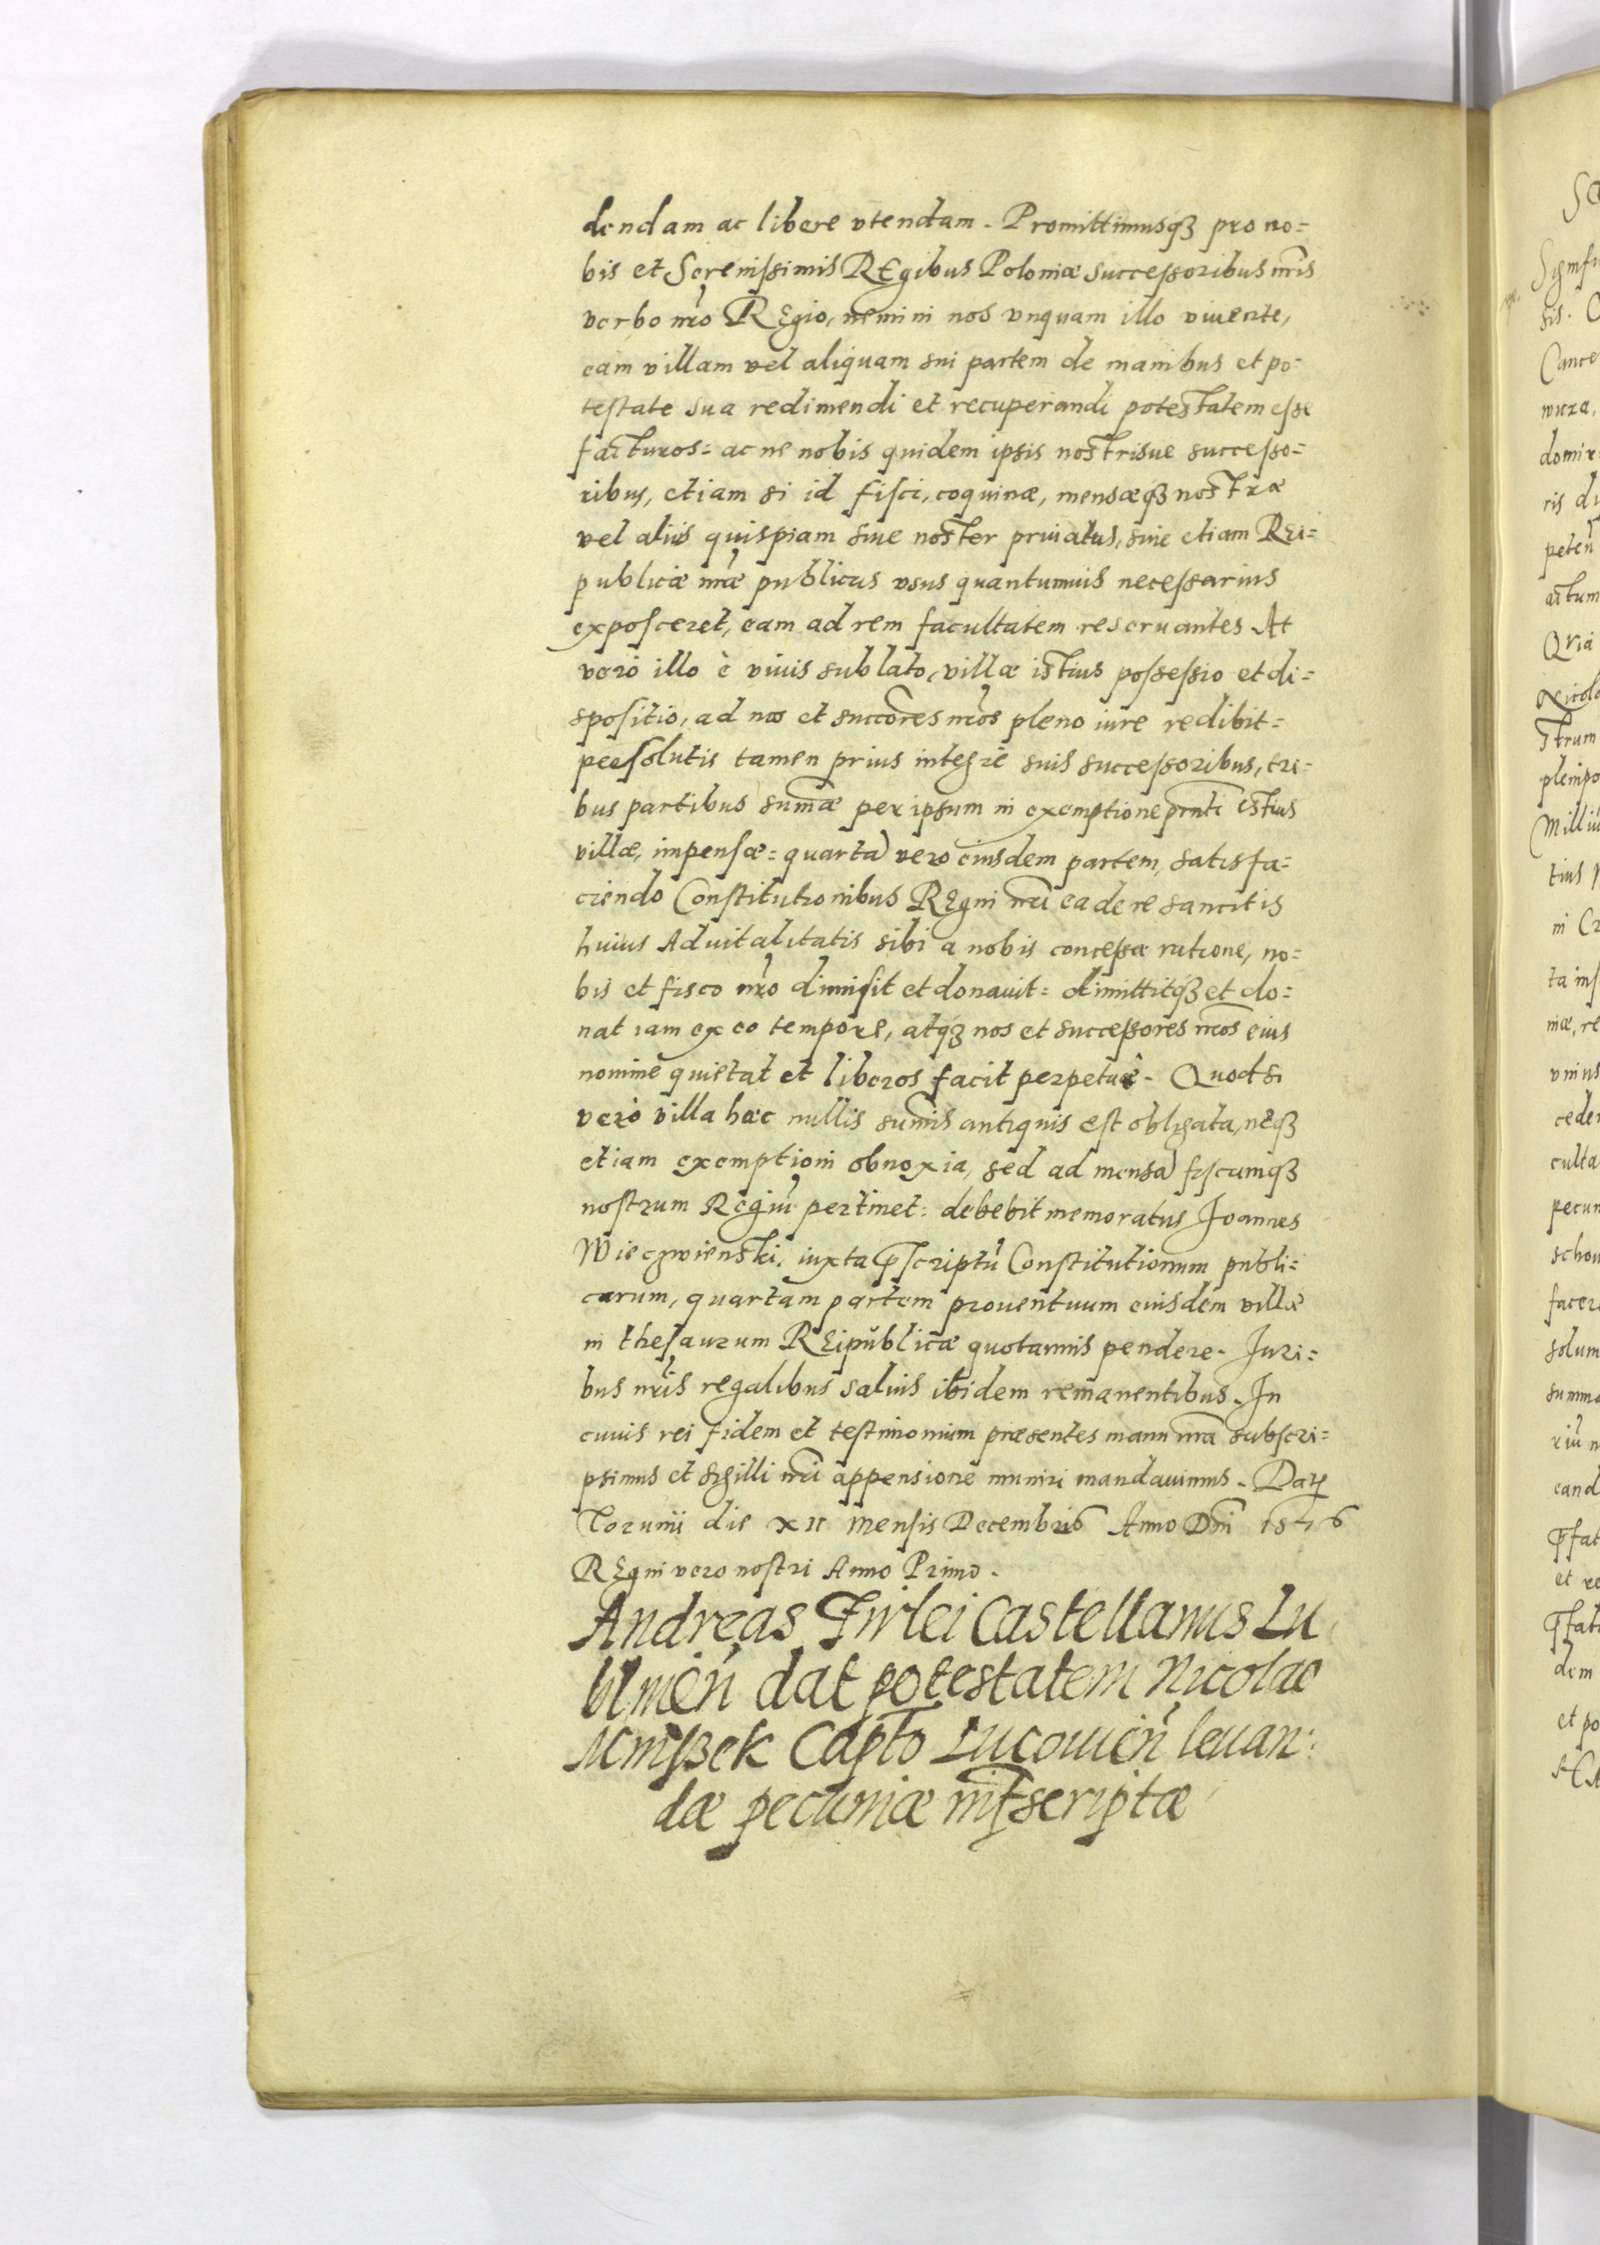 dendam ac libere vtendam. Promittimusq₃ pro no=
bis et Serenissimis REgibus Poloniæ successoribus nris
verbo nro REgio, nemini nos vnquam illo viuente,
eam villam vel aliquam sui partem de manibus et po=
testate sua redimendi et recuperandi potestatem esse
facturos= ac ne nobis quidem ipsis nostrisue successo=
ribus, etiam si id fisci, coquinæ, mensæq₃ nostræ
vel alius quispiam siue noster priuatus, siue etiam REi=
publicæ nræ publicus vsus quantumuis necessarius
exposceret, eam ad rem facultatem reseruantes At
verò illo è viuis sublato, villæ istius possessio et di=
spositio, ad nos et succores nros pleno iure redibit=
persolutis tamen prius integrè suis successoribus, tri=
bus partibus sumæ per ipsum in exemptione prnti istius
villæ, impensæ= quarta vero eiusdem partem, satisfa=
ciendo Constitutionibus REgni nri ea de re sancitis
huius Aduitalitatis sibi a nobis concessæ ratione, no=
bis et fisco nro dimisit et donauit= dimittitq₃ et do=
nat iam ex eo tempore, atq₃ nos et successores nros eius
nomine quietat et liberos facit perpetuò. Quod si
verò villa hæc nullis sumis antiquis est obligata, neq₃
etiam exemptioni obnoxia, sed ad mensa fiscumq₃
nostrum Regiu pertinet= debebit memoratus Joannes
Wieczwienski, iuxta pscriptu Constitutionum publi=
carum, quartam partem prouentuum eiusdem villæ
in thesaurum REipublicæ quotannis pendere. Juri=
bus nris regalibus saluis ibidem remanentibus. In
cuuis rei fidem et testimonium præsentes manu nra subscri=
psimus et sigilli nri appensione muniri mandauimus. Datꝭ
Torunii die XII Mensis Decembris Anno Dni 1576
REgni vero nostri Anno Primo.
Andreas Firlei Castellanus Lu
blineñ dat potestatem Nicolao
Mniszek Capto Lucouieñ leuan:
dæ pecuniæ infrscriptæ